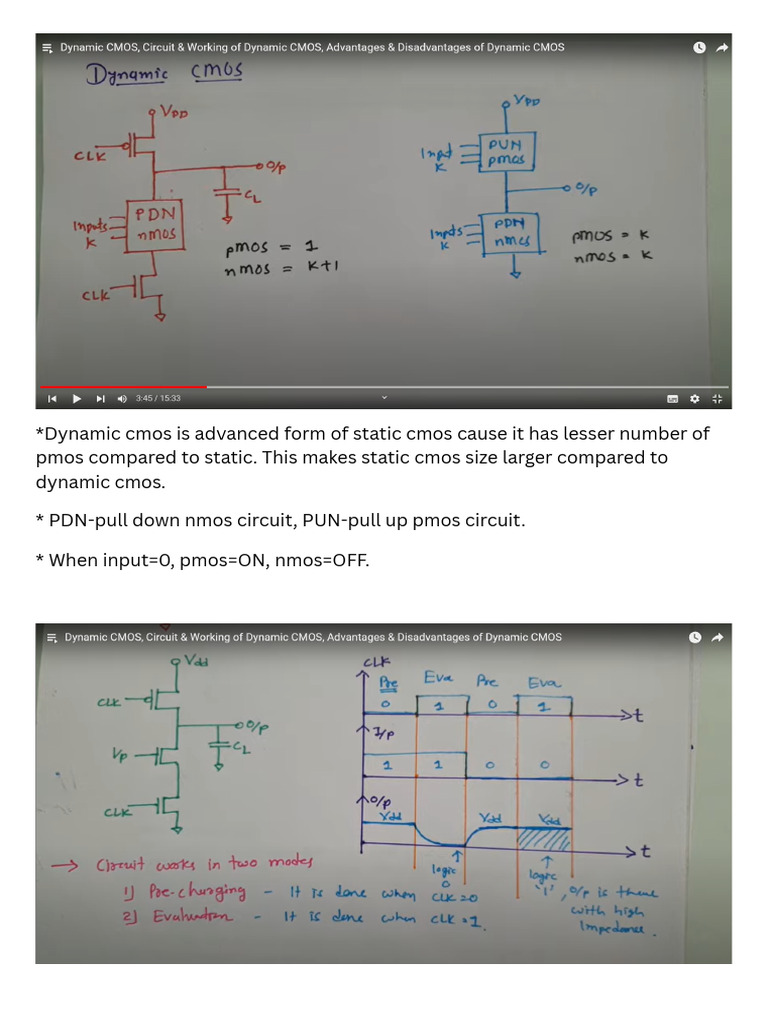 Dynamic CMOS, Circuit & Working of Dynamic CMOS, Advantages & Disadvantages of Dynamic CMOS
Dynamic CMOS
VDD
CLK
O/P
CL
Inputs
K
PDN
nmos
CLK
pmos = 1
nmos = K+1
VDD
Input
K
PUN
pmos
O/P
Inputs
K
PDN
nmos
pmos = K
nmos = K
3:45 / 15:33
*Dynamic cmos is advanced form of static cmos cause it has lesser number of
pmos compared to static. This makes static cmos size larger compared to
dynamic cmos.
* PDN-pull down nmos circuit, PUN-pull up pmos circuit.
* When input=0, pmos=ON, nmos=OFF.
Dynamic CMOS, Circuit & Working of Dynamic CMOS, Advantages & Disadvantages of Dynamic CMOS
Vdd
CLK
O/P
CL
Vp
CLK
CLK
Pre Eva Pre Eva
0 1 0 1
t
I/P
1 1 0 0
t
O/P
Vdd Vdd Vdd
t
logic
0
logic
'1', O/P is there
with high
Impedance.
→ Circuit works in two modes
1) Pre-charging - It is done when CLK=0
2) Evaluation - It is done when CLK=1.